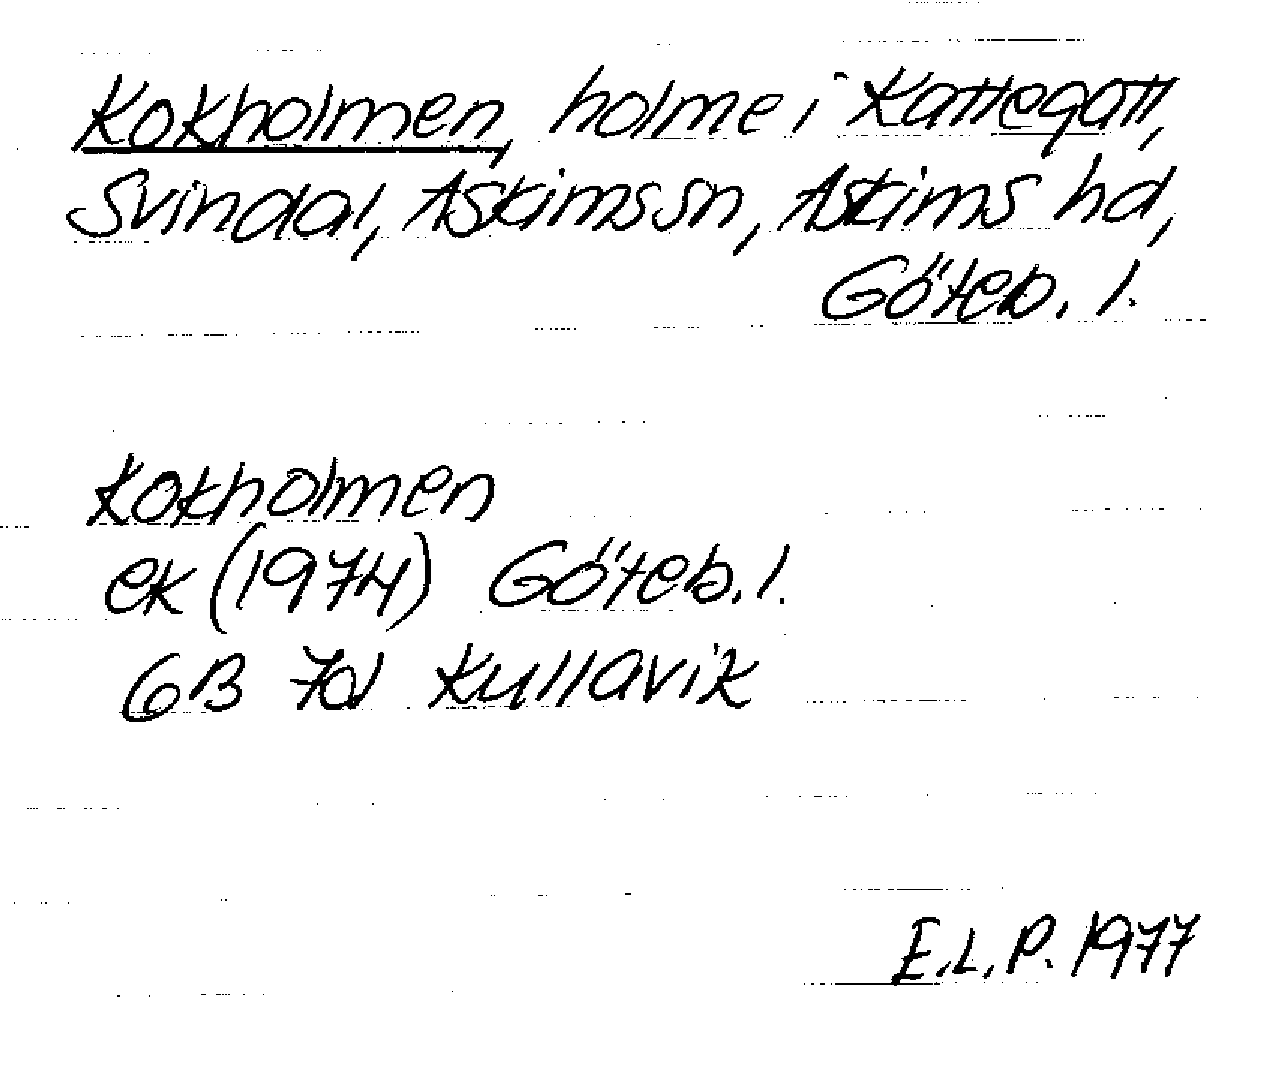 Kokholmen, holme i Kattegatt,
Svindal, Askims sn, Askims hd,
Göteb. l.
Kokholmen
ek (1974) Göteb. l.
6B 7d Kullavik
E.L.P. 1977